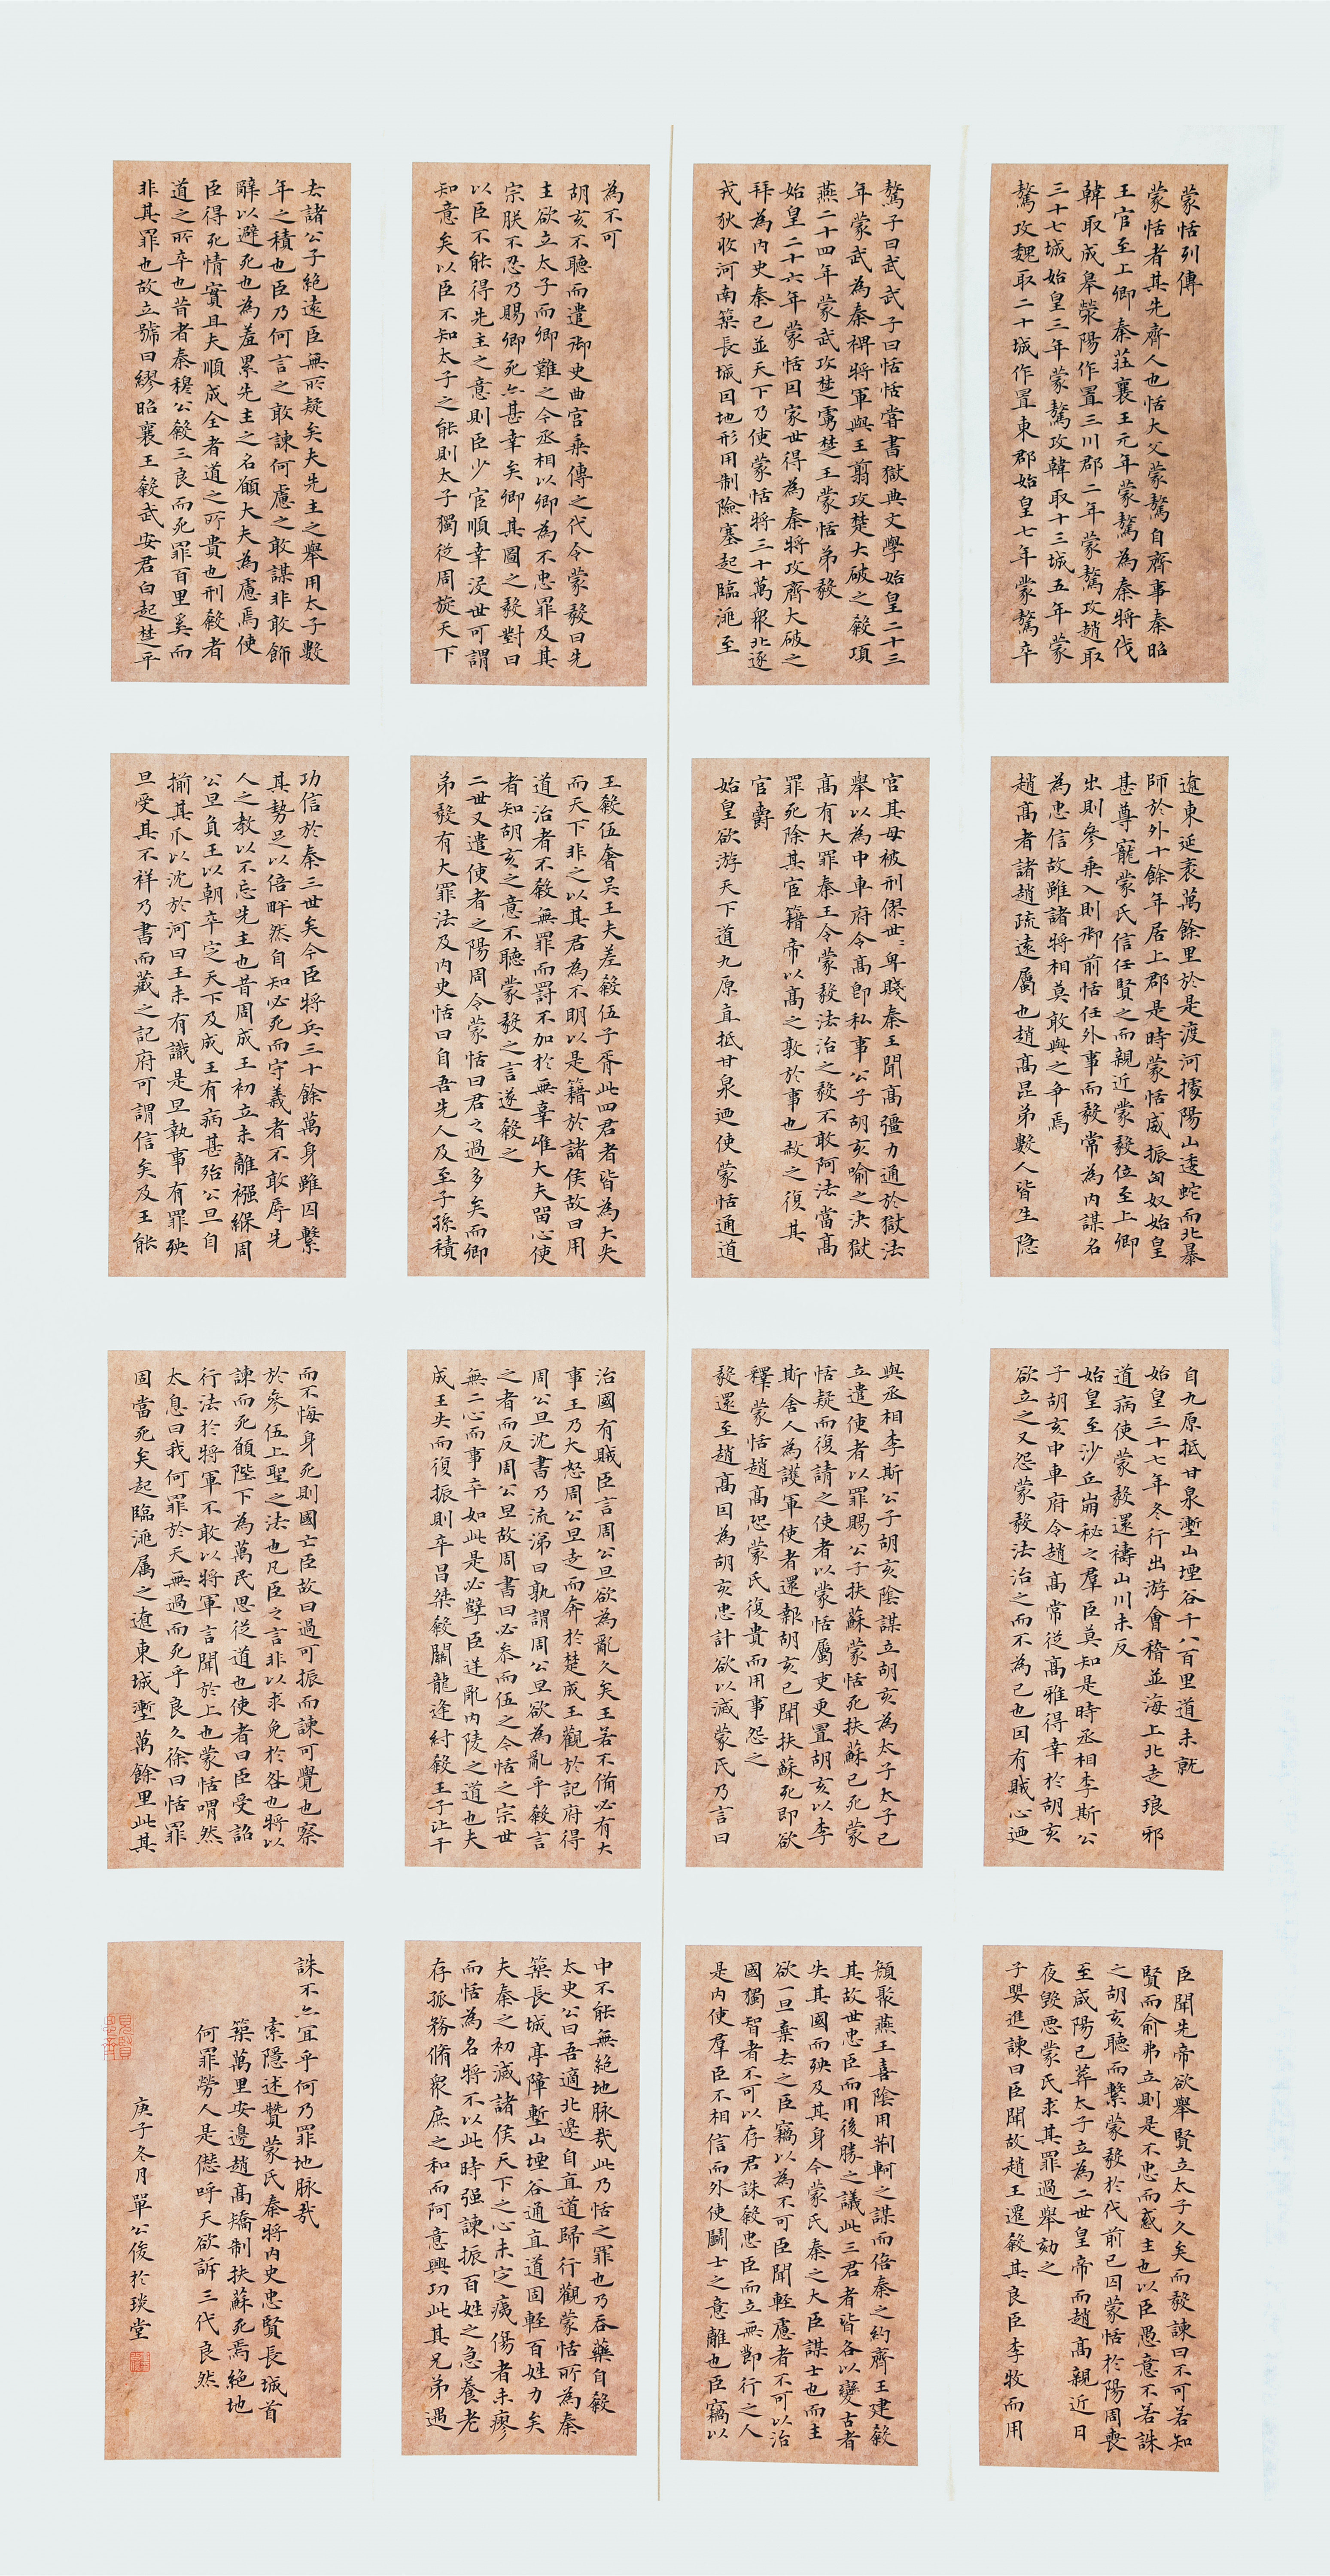 蒙恬列傳
蒙恬者其先齊人也恬大父蒙驁自齊事秦昭
王官至上卿秦莊襄王元年蒙驁為秦將伐
韓取成皋滎陽作置三川郡二年蒙驁攻趙取
三十七城始皇三年蒙驁攻韓取十三城五年蒙
驁攻魏取二十城作置東郡始皇七年蒙驁卒
驁子曰武武子曰恬恬嘗書獄典文學始皇二十三
年蒙武為秦裨將軍與王翦攻楚大破之殺項
燕二十四年蒙武攻楚虜楚王蒙恬弟毅
始皇二十六年蒙恬因家世得為秦將攻齊大破之
拜為內史秦已並天下乃使蒙恬將三十萬眾北逐
戎狄收河南築長城因地形用制險塞起臨洮至
遼東延袤萬餘里於是渡河據陽山逶蛇而北暴
師於外十餘年居上郡是時蒙恬威振匈奴始皇
甚尊寵蒙氏信任賢之而親近蒙毅位至上卿
出則參乘入則御前恬任外事而毅常為內謀名
為忠信故雖諸將相莫敢與之爭焉
趙高者諸趙疏遠屬也趙高昆弟數人皆生隱
宮其母被刑僇世〻卑賤秦王聞高彊力通於獄法
舉以為中車府令高即私事公子胡亥喻之決獄
高有大罪秦王令蒙毅法治之毅不敢阿法當高
罪死除其宦籍帝以高之敦於事也赦之復其
官爵
始皇欲游天下道九原直抵甘泉迺使蒙恬通道
自九原抵甘泉塹山堙谷千八百里道未就
始皇三十七年冬行出游會稽並海上北走琅邪
道病使蒙毅還禱山川未反
始皇至沙丘崩祕之羣臣莫知是時丞相李斯公
子胡亥中車府令趙高常從高雅得幸於胡亥
欲立之又怨蒙毅法治之而不為己也因有賊心迺
與丞相李斯公子胡亥陰謀立胡亥為太子太子已
立遣使者以罪賜公子扶蘇蒙恬死扶蘇已死蒙
恬疑而復請之使者以蒙恬屬吏更置胡亥以李
斯舍人為護軍使者還報胡亥已聞扶蘇死即欲
釋蒙恬趙高恐蒙氏復貴而用事怨之
毅還至趙高因為胡亥忠計欲以滅蒙氏乃言曰
臣聞先帝欲舉賢立太子久矣而毅諫曰不可若知
賢而俞弗立則是不忠而惑主也以臣愚意不若誅
之胡亥聽而繫蒙毅於代前已囚蒙恬於陽周喪
至咸陽已葬太子立為二世皇帝而趙高親近日
夜毀惡蒙氏求其罪過舉劾之
子嬰進諫曰臣聞故趙王遷殺其良臣李牧而用
顏聚燕王喜陰用荆軻之謀而倍秦之約齊王建殺
其故世忠臣而用後勝之議此三君者皆各以變古者
失其國而殃及其身今蒙氏秦之大臣謀士也而主
欲一旦棄去之臣竊以為不可臣聞輕慮者不可以治
國獨智者不可以存君誅殺忠臣而立無節行之人
是內使羣臣不相信而外使鬭士之意離也臣竊以
為不可
胡亥不聽而遣御史曲宮乘傳之代令蒙毅曰先
主欲立太子而卿難之今丞相以卿為不忠罪及其
宗朕不忍乃賜卿死亦甚幸矣卿其圖之毅對曰
以臣不能得先主之意則臣少宦順幸沒世可謂
知意矣以臣不知太子之能則太子獨從周旋天下
去諸公子絕遠臣無所疑矣夫先主之舉用太子數
年之積也臣乃何言之敢諫何慮之敢謀非敢飾
辭以避死也為羞累先主之名願大夫為慮焉使
臣得死情實且夫順成全者道之所貴也刑殺者
道之所卒也昔者秦穆公殺三良而死罪百里奚而
非其罪也故立號曰繆昭襄王殺武安君白起楚平
王殺伍奢吳王夫差殺伍子胥此四君者皆為大失
而天下非之以其君為不明以是籍於諸侯故曰用
道治者不殺無罪而罰不加於無辜唯大夫留心使
者知胡亥之意不聽蒙毅之言遂殺之
二世又遣使者之陽周令蒙恬曰君之過多矣而卿
弟毅有大罪法及內史恬曰自吾先人及至子孫積
功信於秦三世矣今臣將兵三十餘萬身雖囚繫
其勢足以倍畔然自知必死而守義者不敢辱先
人之教以不忘先主也昔周成王初立未離襁緥周
公旦負王以朝卒定天下及成王有病甚殆公旦自
揃其爪以沈於河曰王未有識是旦執事有罪殃
旦受其不祥乃書而藏之記府可謂信矣及王能
治國有賊臣言周公旦欲為亂久矣王若不備必有大
事王乃大怒周公旦走而奔於楚成王觀於記府得
周公旦沈書乃流涕曰孰謂周公旦欲為亂乎殺言
之者而反周公旦故周書曰必参而伍之今恬之宗世
無二心而事卒如此是必孽臣逆亂內陵之道也夫
成王失而復振則卒昌桀殺關龍逢紂殺王子比干
而不悔身死則國亡臣故曰過可振而諫可覺也察
於參伍上聖之法也凡臣之言非以求免於咎也將以
諫而死願陛下為萬民思從道也使者曰臣受詔
行法於將軍不敢以將軍言聞於上也蒙恬喟然
太息曰我何罪於天無過而死乎良久徐曰恬罪
固當死矣起臨洮屬之遼東城塹萬餘里此其
中不能無絕地脉哉此乃恬之罪也乃吞藥自殺
太史公曰吾適北邊自直道歸行觀蒙恬所為秦
築長城亭障塹山堙谷通直道固輕百姓力矣
夫秦之初滅諸侯天下之心未定痍傷者未瘳
而恬為名將不以此時强諫振百姓之急養老
存孤務脩眾庶之和而阿意興功此其兄弟遇
誅不亦宜乎何乃罪地脉哉
索隱述贊蒙氏秦將內史忠賢長城首
築萬里安邊趙高矯制扶蘇死焉絕地
何罪勞人是愆呼天欲訴三代良然
庚子冬月單公俊於琰堂